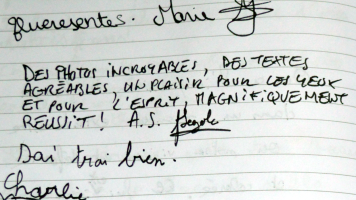 queresentes. Marie
DES PHOTOS INCROYABLES, DES TEXTES
AGRÉABLES, UN PLAISIR POUR LES YEUX
ET POUR L'ESPRIT, MAGNIFIQUEMENT
REUSSIT! A.S.
Sai trai bien.
Charlie